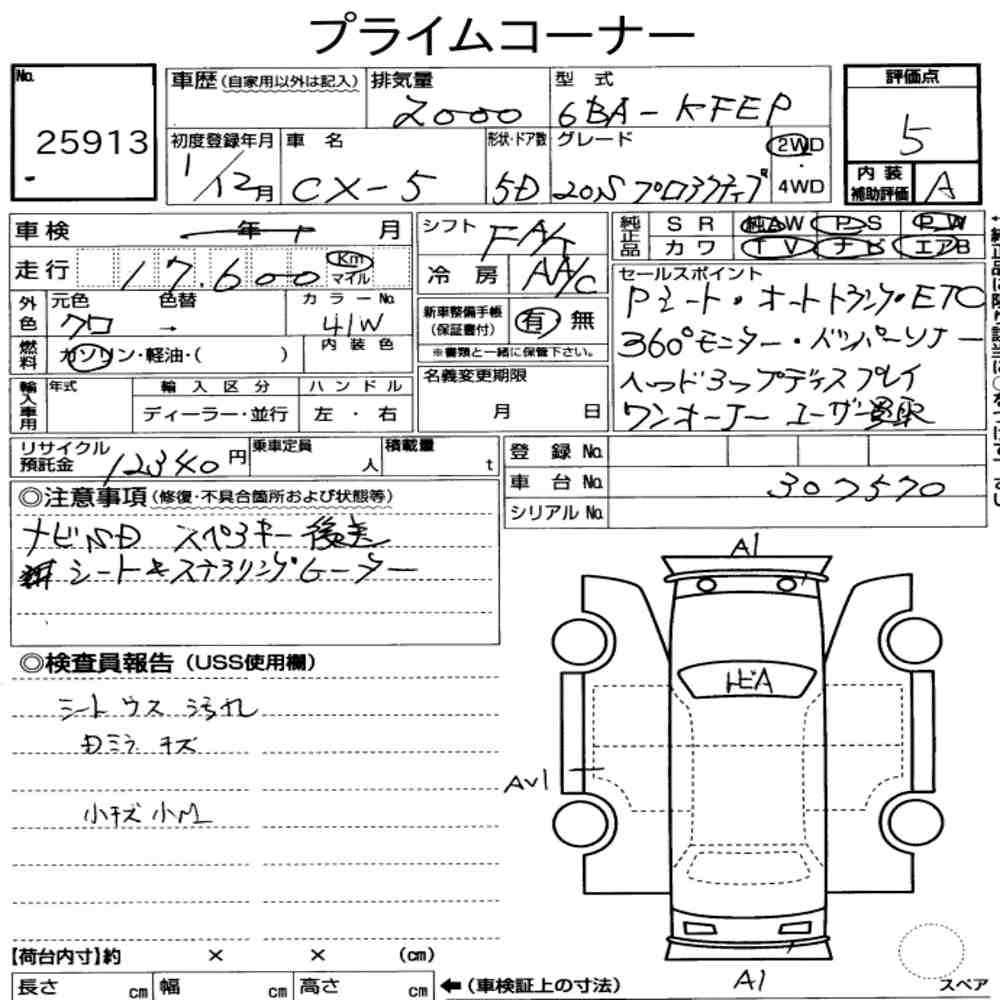 プライムコーナー
No. 25913
車歴(自家用以外は記入) 排気量 2000 型式 6BA-KFEP
評価点 5
初度登録年月 1/12月 車名 CX-5 形状・ドア数 5D グレード 20S プロアクティブ 2WD 4WD
内装補助評価 A
車検 年 月
シフト FA/T
純正品 SR 純AW P-S P-W
カワ TV ナビ エアB
走行 17,600 Km マイル
冷房 AA/C
セールスポイント
Pシート・オートトランク・ETC
360°モニター・ドソナー
ヘッドアップディスプレイ
ワンオーナー ユーザー買取
外色 元色 クロ → 色替 カラーNo. 41W
新車整備手帳(保証書付) 有 無
※書類と一緒に保管下さい。
燃料 ガソリン・軽油・( ) 内装色
名義変更期限 月 日
輸入車用 年式 輸入区分 ハンドル
ディーラー・並行 左・右
リサイクル預託金 12340円 乗車定員 人 積載量 t
登録No.
車台No. 307570
シリアルNo.
◎注意事項(修復・不具合箇所および状態等)
ナビSD スペアキー後送
シート&ステアリングヒーター
◎検査員報告(USS使用欄)
シートウス汚れ
ミラーキズ
小キズ小M
A1
トビA
AV1
A1
スペア
【荷台内寸】約 × × (cm)
長さ cm 幅 cm 高さ cm ←(車検証上の寸法)